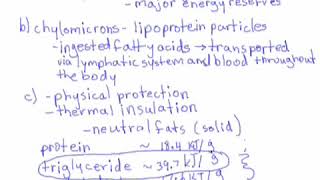 - major energy reserves
b) chylomicrons - lipoprotein particles
- ingested fatty acids → transported
via lymphatic system and blood throughout
the body
c) - physical protection
- thermal insulation
- neutral fats (solid)
protein ~ 18.4 kJ/g
triglyceride ~ 39.7 kJ/g